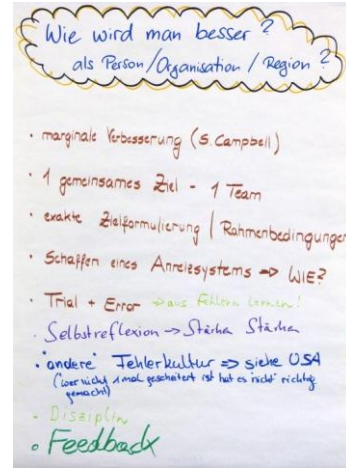 Wie wird man besser?
als Person/Organisation/Region?
• marginale Verbesserung (S. Campbell)
• 1 gemeinsames Ziel - 1 Team
• exakte Zielformulierung / Rahmenbedingungen
• Schaffen eines Anreizsystems => WIE?
• Trial + Error => aus Fehlern lernen!
• Selbstreflexion -> Stärken Stärken
• "andere" Fehlerkultur => siehe USA
(wer nicht 1 mal gescheitert ist hat es nicht richtig
gemacht)
• Disziplin
• Feedback